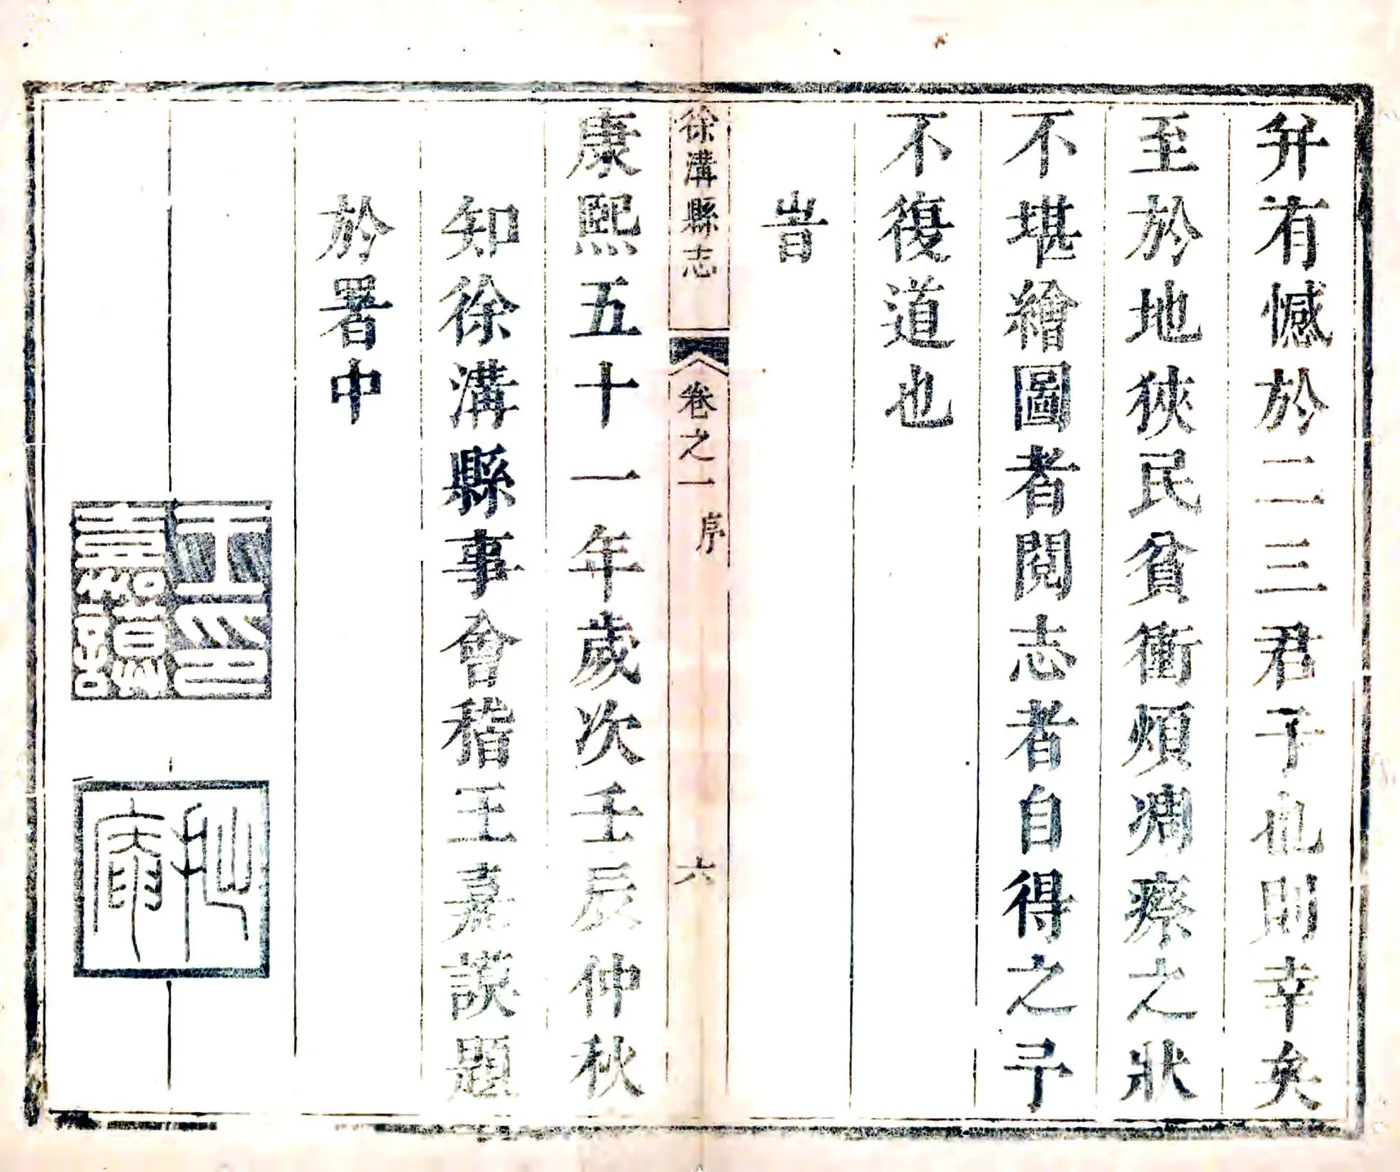 幷有憾於二三君子也則幸矣
至於地狹民貧衝煩凋瘵之狀
不堪繪圖者閱志者自得之予
不復道也
旹
徐溝縣志
卷之一
序
六
康熙五十一年歲次壬辰仲秋
知徐溝縣事會稽王嘉謨題
於署中
王印嘉謨